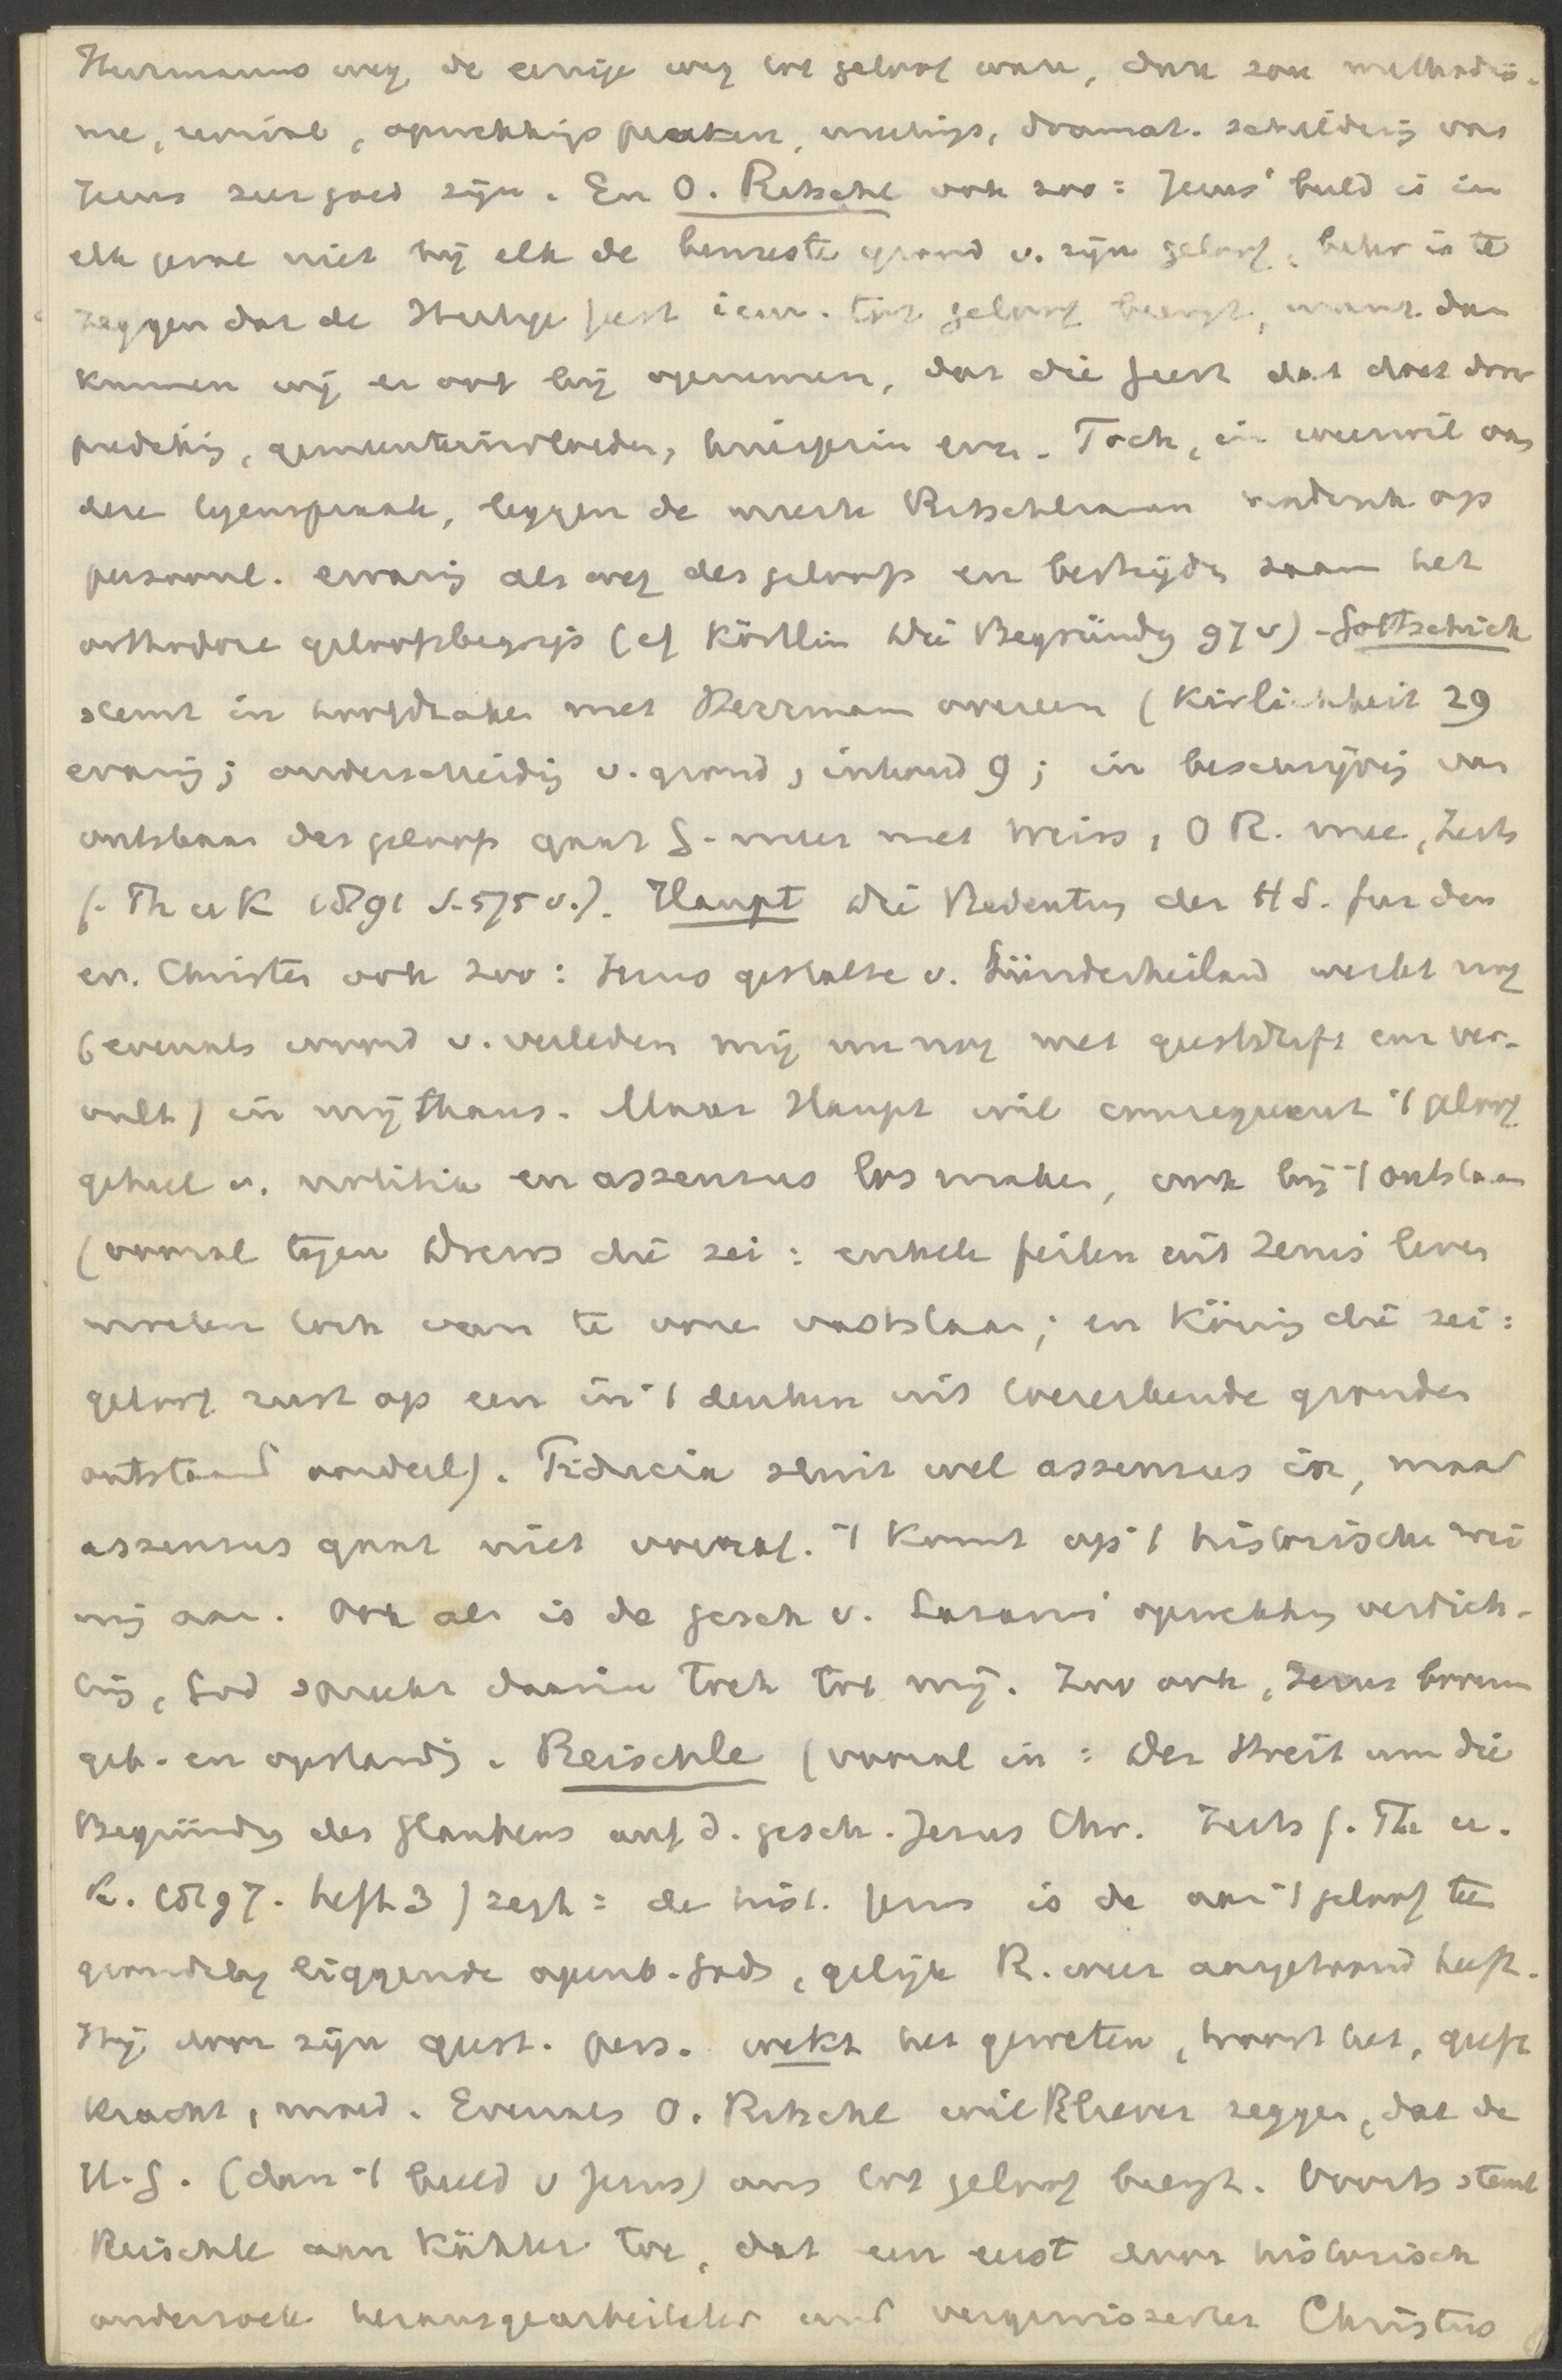 Herrmanns weg, de eenige weg tot geloof ware, dan zou methodis-
me, revival, opwekkingspreken, meetings, dramat. schildering van
Jezus zeer goed zijn. En O. Ritschl ook zoo: Jezus' beeld is in
elk geval niet bij elk de bewuste grond v. zijn geloof, beter is te
zeggen dat de Heilige Geest iem. tot geloof brengt, want dan
kunnen wij er ook bij opnemen, dat die Geest dat doet door
prediking, gemeenteinvloeden, huisgezin enz. Toch, in weerwil van
deze tegenspraak, leggen de meeste Ritschlianen nadruk op
persoonl. ervaring als weg des geloofs en bestrijden saam het
orthodoxe geloofsbegrip (cf Köstlin Die Begründg 97 v) - Gottschick
stemt in hoofdzaken met Herrmann overeen (Kirlichkeit 29
ervaring; onderscheiding v. grond, inhoud 9; in beschrijving van
ontstaan des geloofs gaat G. meer met Weiss, O R. mee, Zeits
f. Th u K 1891 S. 575 v.). Haupt Die Bedeutung der H S. fur den
ev. Christen ook zoo: Jezus gestalte v. Sünderheiland werkt nog
(evenals iemand v. verleden mij nu nog met geestdrift  ver-
vult) in mij thans. Maar Haupt wil consequent 't geloof
geheel v. notitia en assensus los maken, ook bij 't ontstaan
(vooral tegen Drews die zei: enkele feiten uit Jezus leven
moeten toch van te voren vaststaan; en König die zei:
geloof rust op een in 't denken uit toereikende gronden
ontstaand oordeel). Fiducia sluit wel assensus in, maar
assensus gaat niet vooraf. 't Komt op 't historische niet
mij aan. Ook al is de gesch v. Lazarus' opwekking verdich-
ting, God spreekt daarin toch tot mij. Zoo ook, Jezus boven
geb. en opstanding. Reischle (vooral in: Der Streit um die
Begründg des Glaubens auf d. gesch. Jesus Chr. Zeits f. Th u.
K. 1897. heft 3) zegt: de hist. Jezus is de aan 't geloof ten
grondslag liggende openb. Gods, gelijk R. weer aangetoond heeft.
Hij door zijn geest. pers. wekt het geweten, troost het, geeft
kracht, moed. Evenals O. Ritschl wil R liever zeggen, dat de
H. G. (door 't beeld v Jezus) ons tot geloof brengt. Voorts stemt
Reischle aan Kähler toe, dat een eerst door historisch
onderzoek herausgearbeiteter und vergewisserter Christus